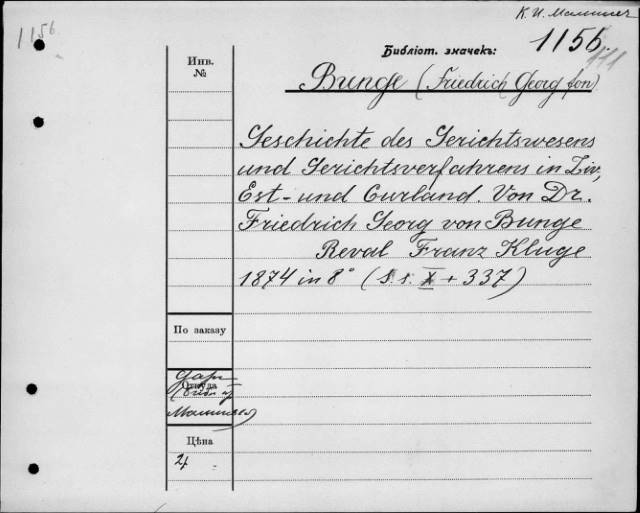 К. И. Малышев
1156
Библіот. значекъ:
1156.
111
Инв.
№
Bunge (Friedrich Georg fon)
Geschichte des Gerichtswesens
und Gerichtsverfahrens in Liv,
Est- und Curland. Von Dr.
Friedrich Georg von Bunge
Reval Franz Kluge
1874 in 8° (S. s. X + 337)
По заказу
Откуда
Малышев)
Цѣна
2